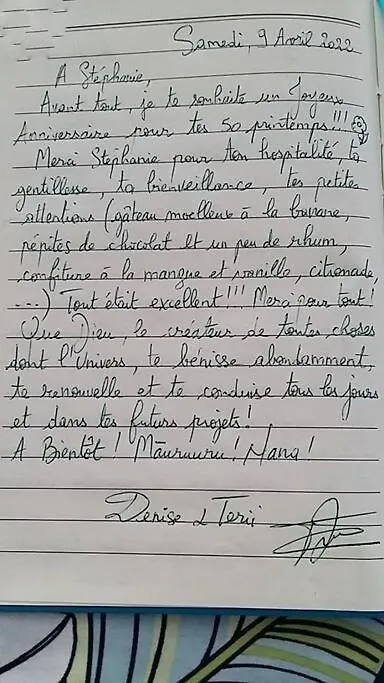 Samedi, 9 Avril 2022
A Stéphanie,
Avant tout, je te souhaite un Joyeux
Anniversaire pour tes 50 printemps!!!
Merci Stéphanie pour ton hospitalité, ta
gentillesse, ta bienveillance, tes petites
attentions (gâteau moelleux à la banane,
pépites de chocolat et un peu de rhum,
confiture à la mangue et vanille, citronade,
...) Tout était excellent!!! Merci pour tout!
Que Dieu, le créateur de toutes choses
dont l'Univers, te bénisse abondamment,
te renouvelle et te conduise tous les jours
et dans tes futurs projets!
A Bientôt! Māuruuru! Nana!
Denise & Terii